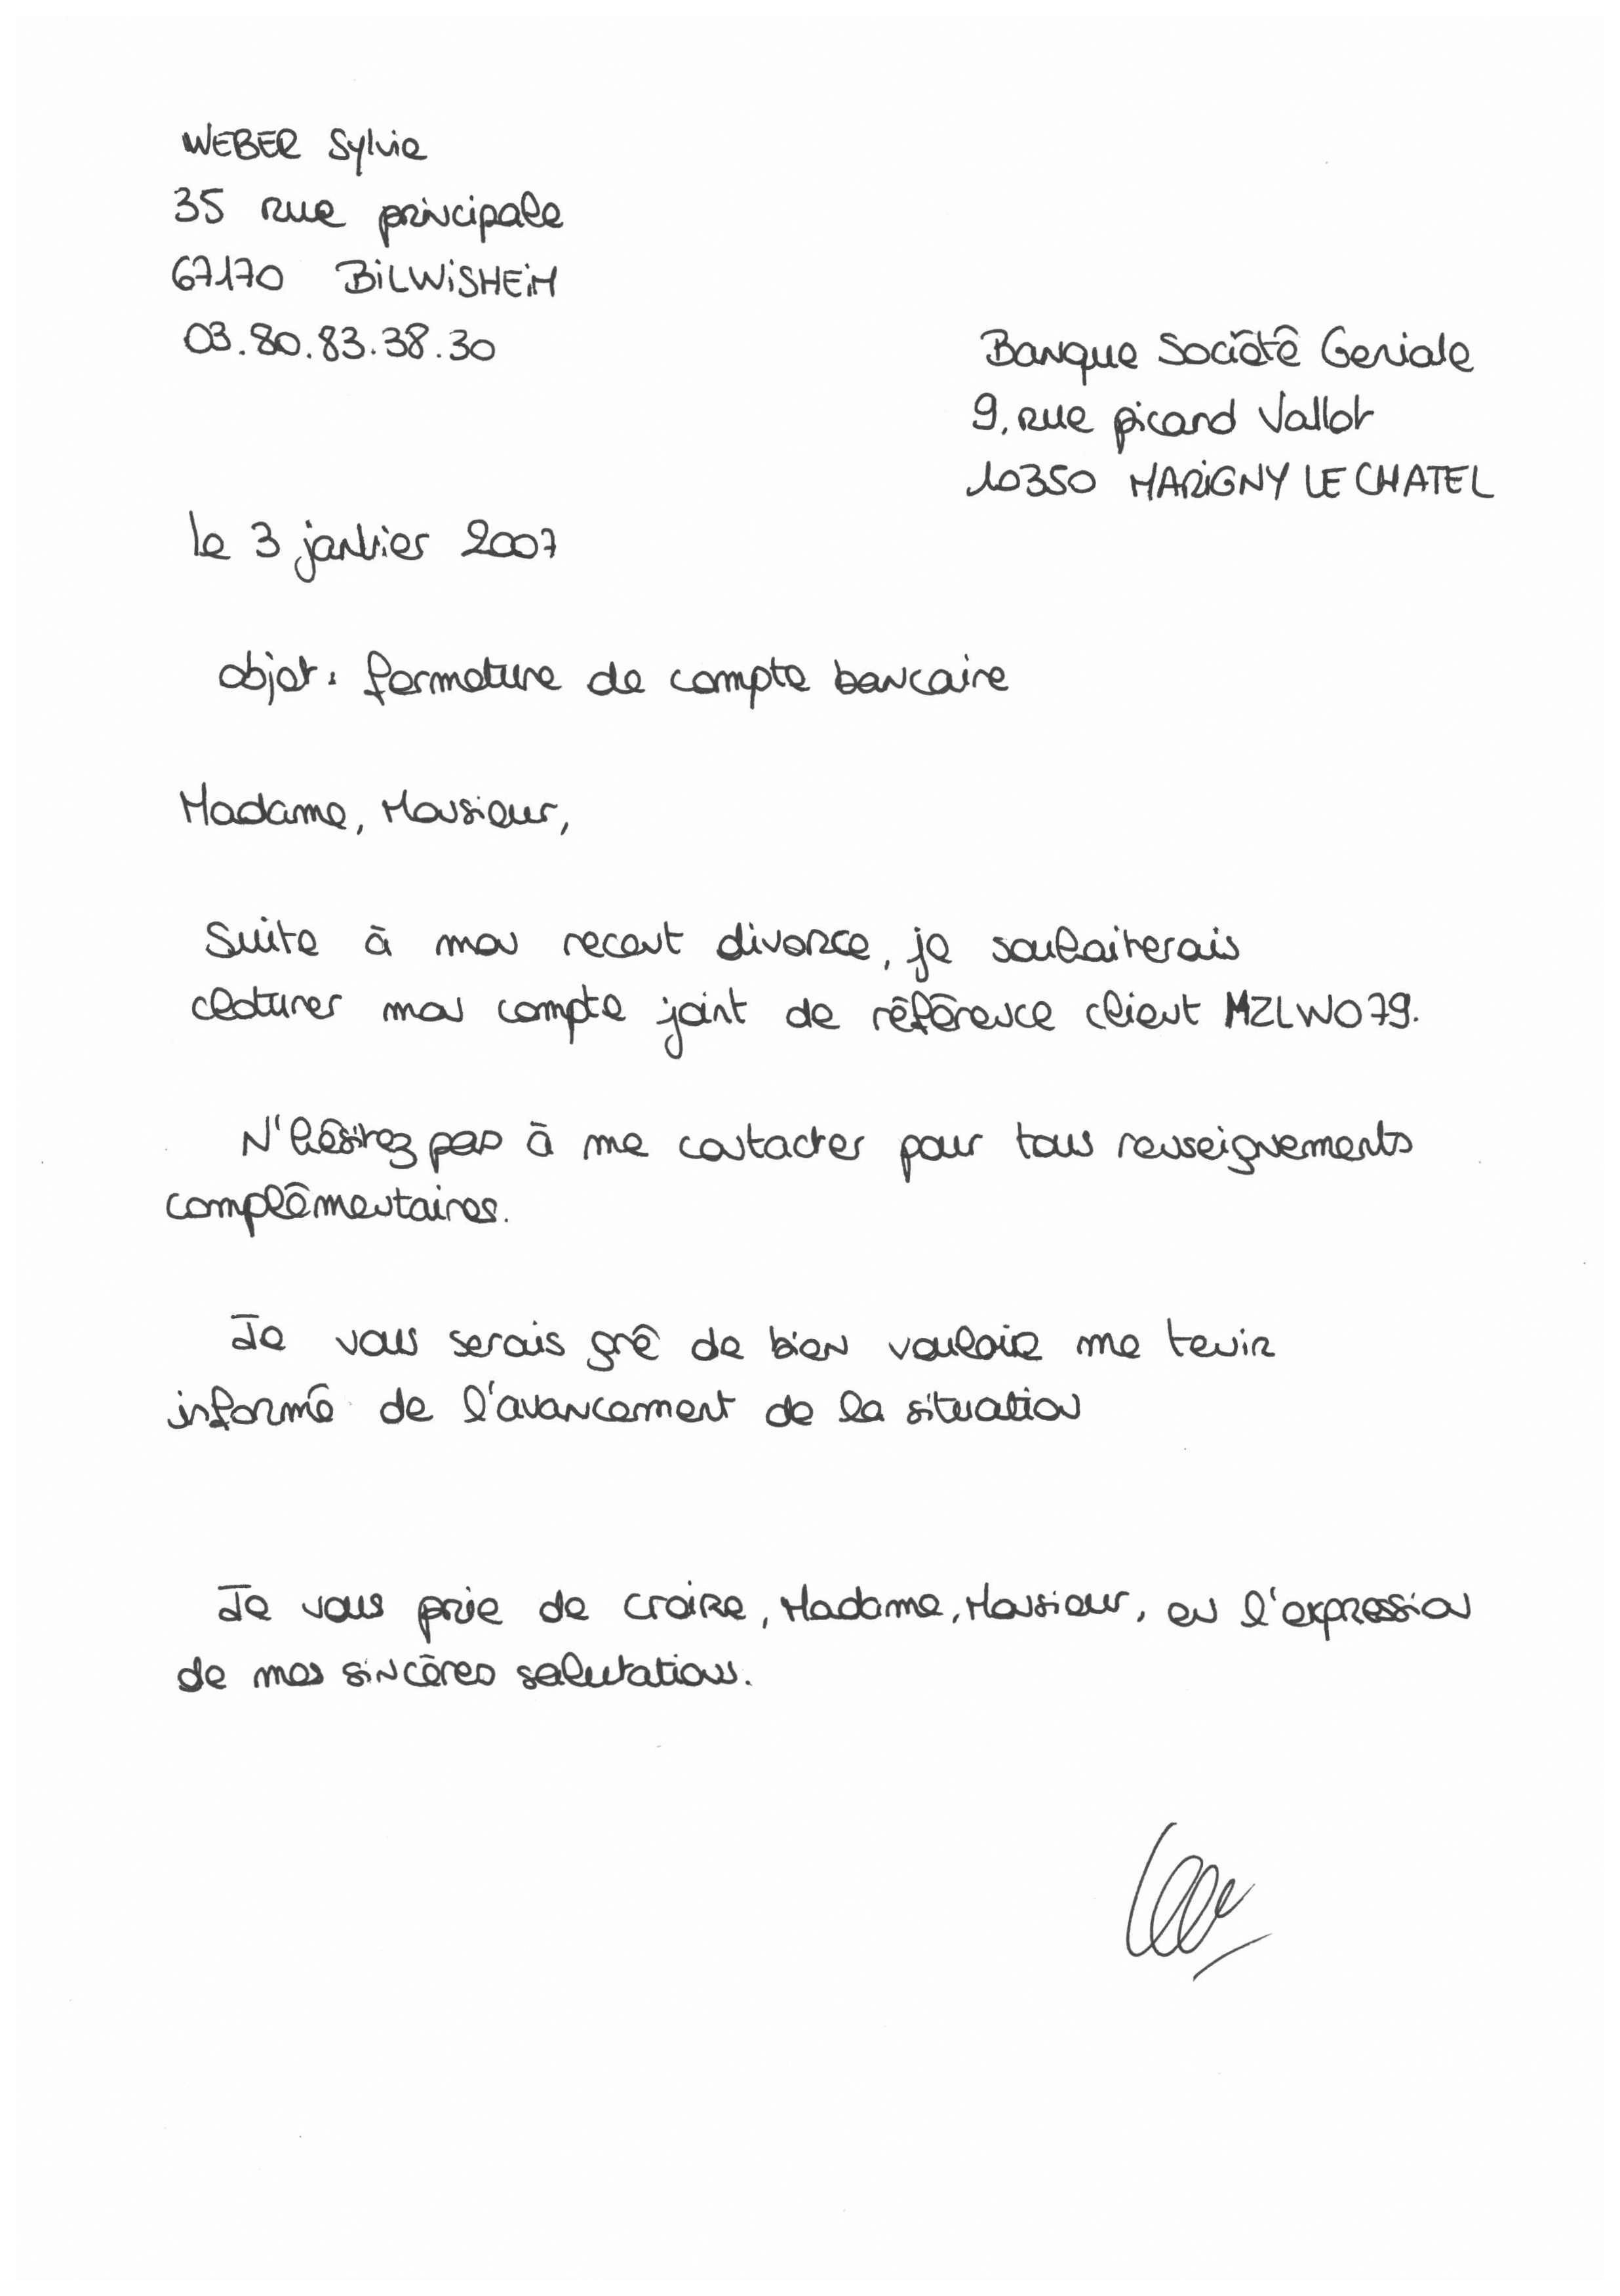 WEBER Sylvie
35 rue principale
67170 BILWISHEIM
03.80.83.38.30
Banque Société Geniale
9, rue picard Vallot
10350 MARIGNY LE CHATEL
le 3 janvier 2007
objet : fermeture de compte bancaire
Madame, Monsieur,
Suite à mon recent divorce, je souhaiterais
cloturer mon compte joint de référence client MZLWO79.
N'hésitez pas à me contacter pour tous renseignements
complémentaires.
Je vous serais gré de bien vouloir me tenir
informé de l'avancement de la situation
Je vous prie de croire, Madame, Monsieur, en l'expression
de mes sincères salutations.